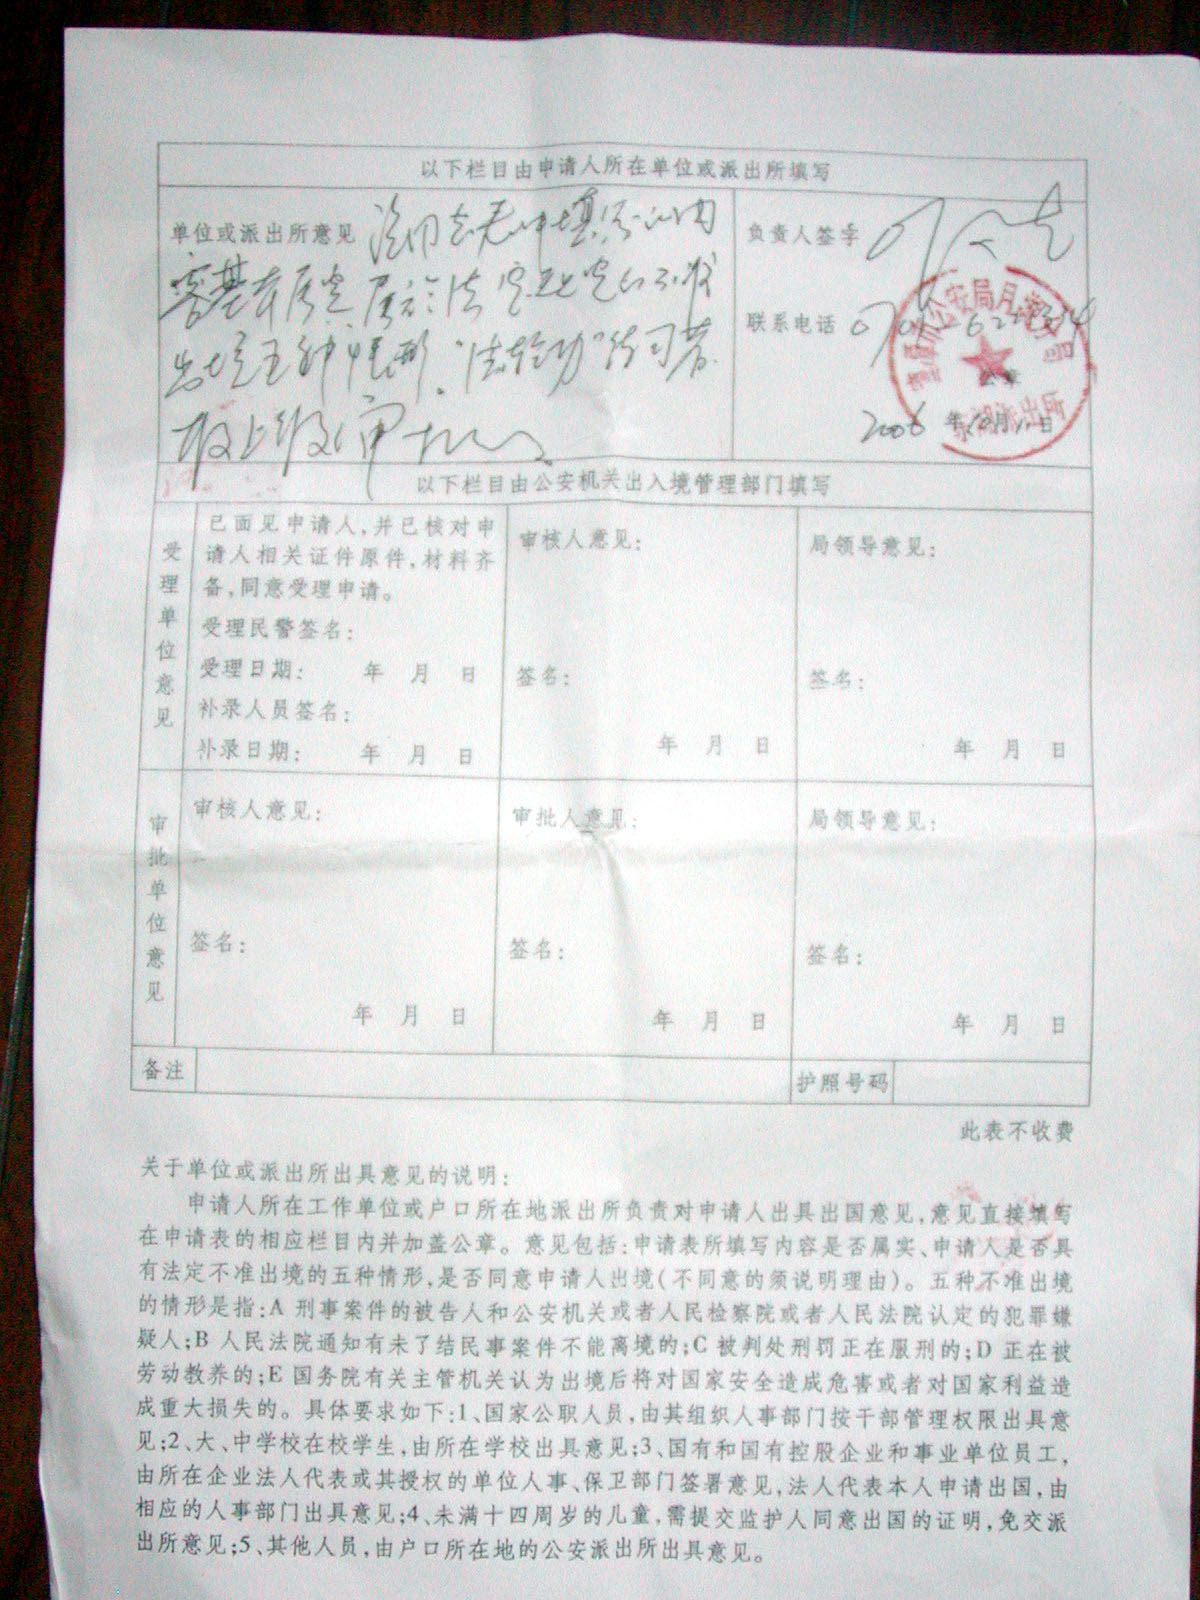 以下栏目由申请人所在单位或派出所填写
单位或派出所意见 该同志表中填写的内
容基本属实,属于法定
出境五种情形,“法轮功”练习者
报上级审批。
负责人签字
联系电话
2006 年 月 日
以下栏目由公安机关出入境管理部门填写
受理单位意见
已面见申请人,并已核对申
请人相关证件原件,材料齐
备,同意受理申请。
受理民警签名:
受理日期: 年 月 日
补录人员签名:
补录日期: 年 月 日
审核人意见:
签名:
年 月 日
局领导意见:
签名:
年 月 日
审批单位意见
审核人意见:
签名:
年 月 日
审批人意见:
签名:
年 月 日
局领导意见:
签名:
年 月 日
备注
护照号码
此表不收费
关于单位或派出所出具意见的说明:
申请人所在工作单位或户口所在地派出所负责对申请人出具出国意见,意见直接填写
在申请表的相应栏目内并加盖公章。意见包括:申请表所填写内容是否属实、申请人是否具
有法定不准出境的五种情形,是否同意申请人出境(不同意的须说明理由)。五种不准出境
的情形是指:A 刑事案件的被告人和公安机关或者人民检察院或者人民法院认定的犯罪嫌
疑人;B 人民法院通知有未了结民事案件不能离境的;C 被判处刑罚正在服刑的;D 正在被
劳动教养的;E 国务院有关主管机关认为出境后将对国家安全造成危害或者对国家利益造
成重大损失的。具体要求如下:1、国家公职人员,由其组织人事部门按干部管理权限出具意
见;2、大、中学校在校学生,由所在学校出具意见;3、国有和国有控股企业和事业单位员工,
由所在企业法人代表或其授权的单位人事、保卫部门签署意见,法人代表本人申请出国,由
相应的人事部门出具意见;4、未满十四周岁的儿童,需提交监护人同意出国的证明,免交派
出所意见;5、其他人员,由户口所在地的公安派出所出具意见。